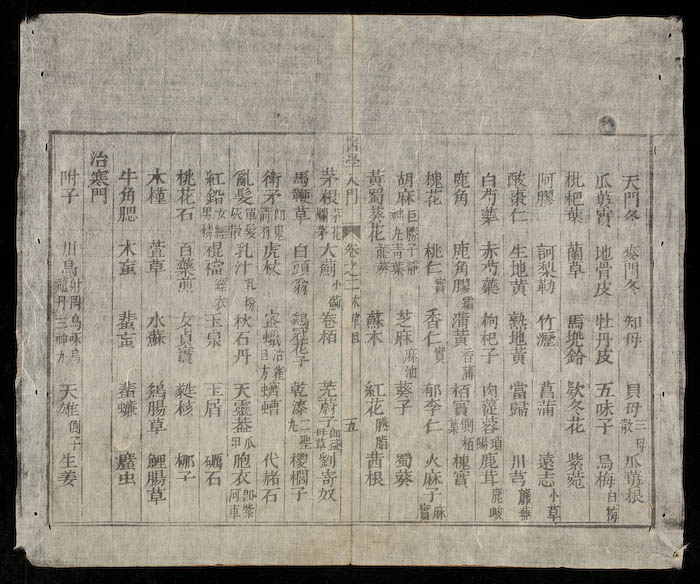 天門冬 麥門冬 知母 貝母 三母散 瓜蔞根
瓜蔞實 地骨皮 牡丹皮 五味子 烏梅 白梅
枇杷葉 蘭草 馬兜鈴 欵冬花 紫菀
阿膠 訶梨勒 竹瀝 菖蒲 遠志 小草
酸棗仁 生地黃 熟地黃 當歸 川芎 蘼蕪
白芍藥 赤芍藥 枸杞子 肉蓯蓉 鹿茸
鹿角 鹿角膠 霜 蒲黃 香蒲 栢實 側栢葉 槐實
槐花 桃仁 實 杏仁 實 郁李仁 火麻子 麻實
胡麻 巨勝子 青蘘 芝麻 麻油 葵子 蜀葵
黃蜀葵花 龍葵 蘇木 紅花 臙脂 茜根
醫學入門 卷之二 本草目 五
茅根 茅花 大薊 小薊 卷栢 茺蔚子 劉寄奴
馬鞭草 白頭翁 鷄冠花子 乾漆 二聖丸 㮨櫚子
衛矛 虎杖 蜜蠟 蠐螬 代赭石
亂髮 乳汁 秋石丹 天靈蓋 爪甲 胞衣 即紫河車
紅鉛 女經男精 裩襠 玉泉 玉屑 礪石
桃花石 百藥煎 女貞實 蕤核 梛子
木槿 萱草 水蘇 鷄腸草 鯉腸草
牛角腮 木䖟 蜚䖟 蜚蠊 䗪虫
治寒門
附子 川烏 射罔 烏喙 天雄 側子 生姜